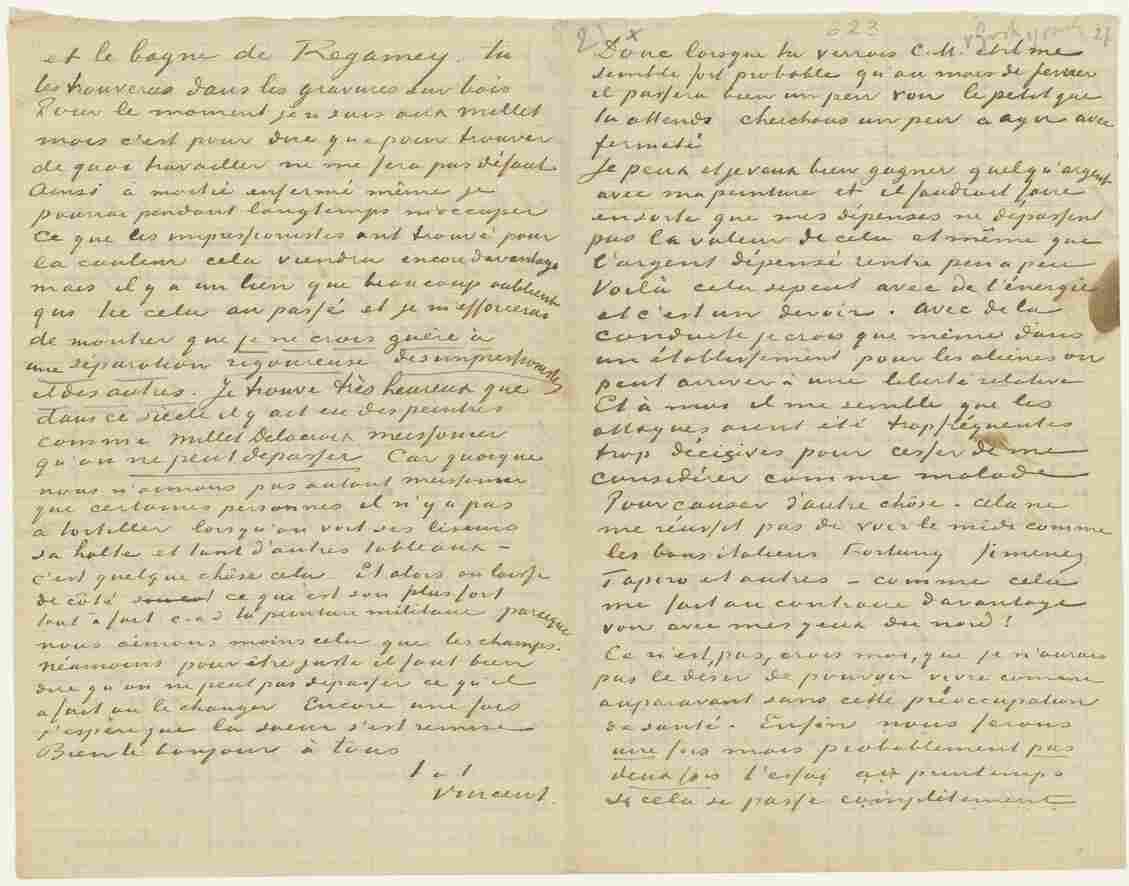 et le bagne de Regamey. tu
les trouveras dans les gravures sur bois
Pour le moment je n'en suis aux Millet
mais c'est pour dire que pour trouver
de quoi travailler ne me fera pas défaut
Ainsi à moitié enfermé même je
pourrai pendant longtemps m'occuper
Ce que les impressionistes ont trouvé pour
la couleur cela viendra encore davantage
mais il y a un lien que beaucoup oublient
qui lie cela au passé et je m'efforcerai
de montrer que je ne crois guère à
une séparation rigoureuse des impressionistes
et des autres. Je trouve très heureux que
dans ce siècle il y ait eu des peintres
comme Millet Delacroix Meissonier
qu'on ne peut dépasser Car quoique
nous n'aimons pas autant Meissonier
que certaines personnes il n'y a pas
à tortiller lorsqu'on voit ses liseurs
sa halte et tant d'autres tableaux –
c'est quelque chôse cela. Et alors on laisse
de côté ce que est son plus fort
tout à fait c.à.d. la peinture militaire parceque
nous aimons moins cela que les champs.
Néamoins pour être juste il faut bien
dire qu'on ne peut pas dépasser ce qu'il
a fait ou le changer Encore une fois
j'espère que la soeur s'est remise
Bien le bonjour à tous
t. à t.
Vincent.
21 x 623 27
Donc lorsque tu verrais C.M. et il me
semble fort probable qu'au mois de fevrier
il passera bien un peu voir le petit que
tu attends cherchons un peu à agir avec
fermeté
Je peux et je veux bien gagner quelqu'argent
avec ma peinture et il faudrait faire
ensorte que mes dépenses ne dépassent
pas la valeur de cela et même que
l'argent dépensé rentre peu a peu
Voilà cela se peut avec de l'énergie
et c'est un devoir. Avec de la
conduite je crois que même dans
un établissement pour les aliénés on
peut arriver à une liberté relative
Et à moi il me semble que les
attaques aient été trop fréquentes
trop décisives pour cesser de me
considérer comme malade
Pour causer d'autre chôse – cela ne
me réussit pas de voir le midi comme
les bons italiens Fortuny Jimenez
Tapiro et autres – comme cela
me fait au contraire davantage
voir avec mes yeux du nord!
Ce n'est, pas, crois moi, que je n'aurais
pas le désir de pouvoir vivre comme
auparavant sans cette préoccupation
de santé. Enfin nous ferons
une fois mais probablement pas
deux fois l'essai au printemps
si cela se passe complètement